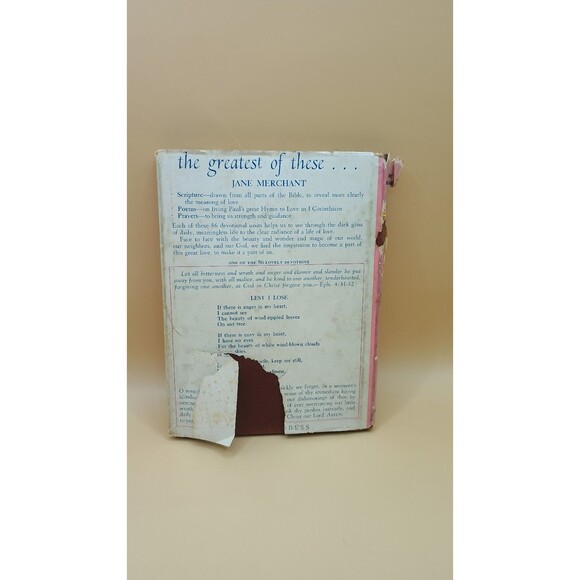 the greatest of these . . .
JANE MERCHANT
Scripture—drawn from all parts of the Bible, to reveal more clearly
the meaning of love
Poems—on living Paul's great Hymn to Love in I Corinthians
Prayers—to bring us strength and guidance
Each of these 86 devotional units helps us to see through the dark glass
of daily, meaningless life to the clear radiance of a life of love.
Face to face with the beauty and wonder and magic of our world,
our neighbors, and our God, we find the inspiration to become a part of
this great love, to make it a part of us.
ONE OF THE 86 LOVELY DEVOTIONS
Let all bitterness and wrath and anger and clamor and slander be put
away from you, with all malice, and be kind to one another, tenderhearted,
forgiving one another, as God in Christ forgave you.—Eph. 4:31-32
LEST I LOSE
If there is anger in my heart,
I cannot see
The beauty of wind-rippled leaves
On any tree.
If there is envy in my heart,
I have no eyes
For the beauty of white wind-blown clouds
skies.
keep me still,
O
quickly we forget, in a moment's
sense of thy immediate having
our dishonorings of thee by
of ever overcoming our little
thy pardon instantly, and
Christ our Lord. AMEN.